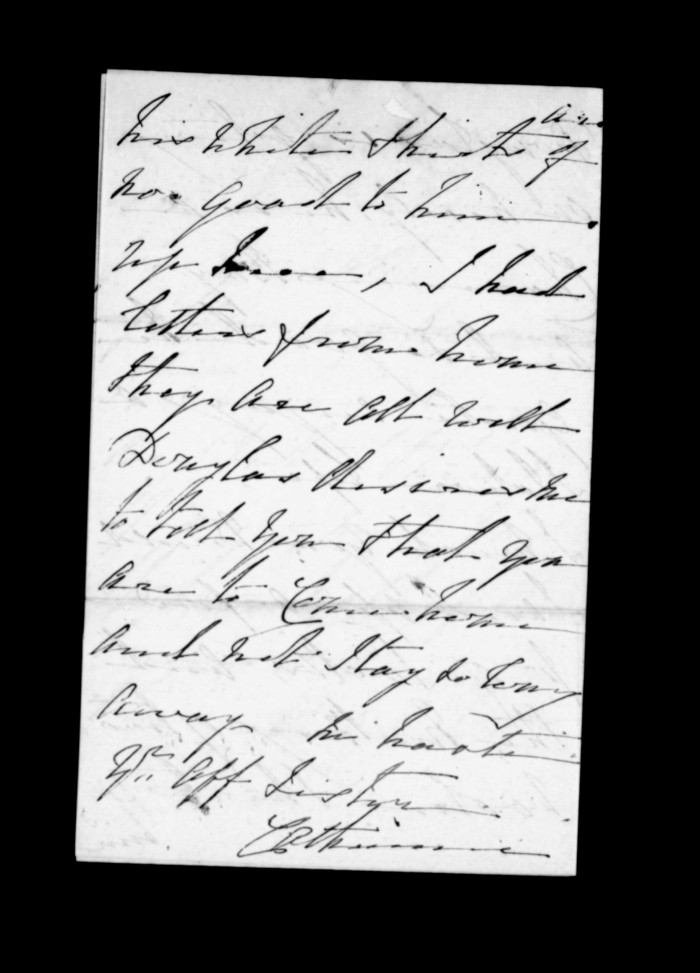 his white shirts are of
no good to him
up here, I had
letters from home
they are all well
Douglas desires me
to tell you that you
are to come home
and not stay so long
away in haste
Yr. aff Sister
Catherine